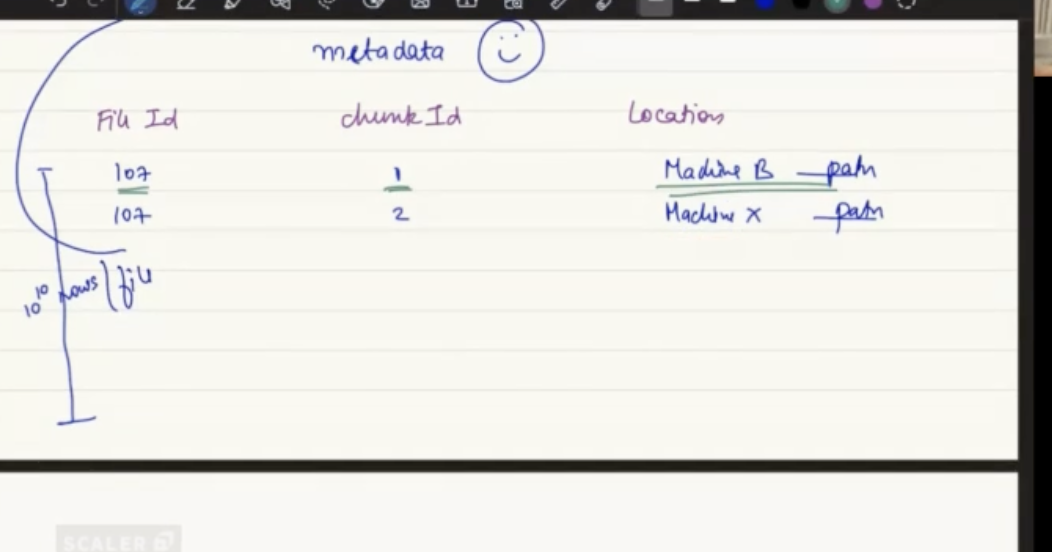 metadata
File Id chunk Id Location
107 1 Machine B path
107 2 Machine X path
10^10 rows/file
SCALER